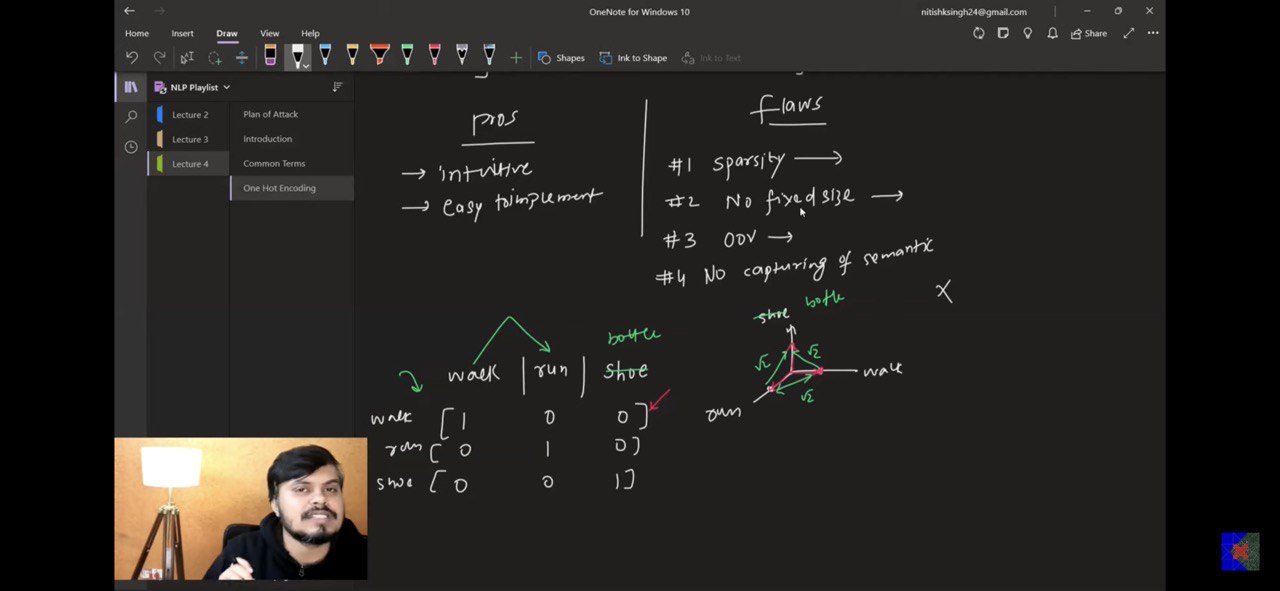 OneNote for Windows 10
nitishksingh24@gmail.com
Home Insert Draw View Help
Share
Shapes Ink to Shape Ink to Text
NLP Playlist
Lecture 2 Plan of Attack
Lecture 3 Introduction
Lecture 4 Common Terms
One Hot Encoding
pros
→ intuitive
→ easy to implement
flaws
#1 sparsity →
#2 No fixed size →
#3 OOV →
#4 No capturing of semantic
X
bottle
walk | run | shoe
walk [ 1 0 0 ]
run [ 0 1 0 ]
shoe [ 0 0 1 ]
shoe bottle
√2 √2
walk
√2
run